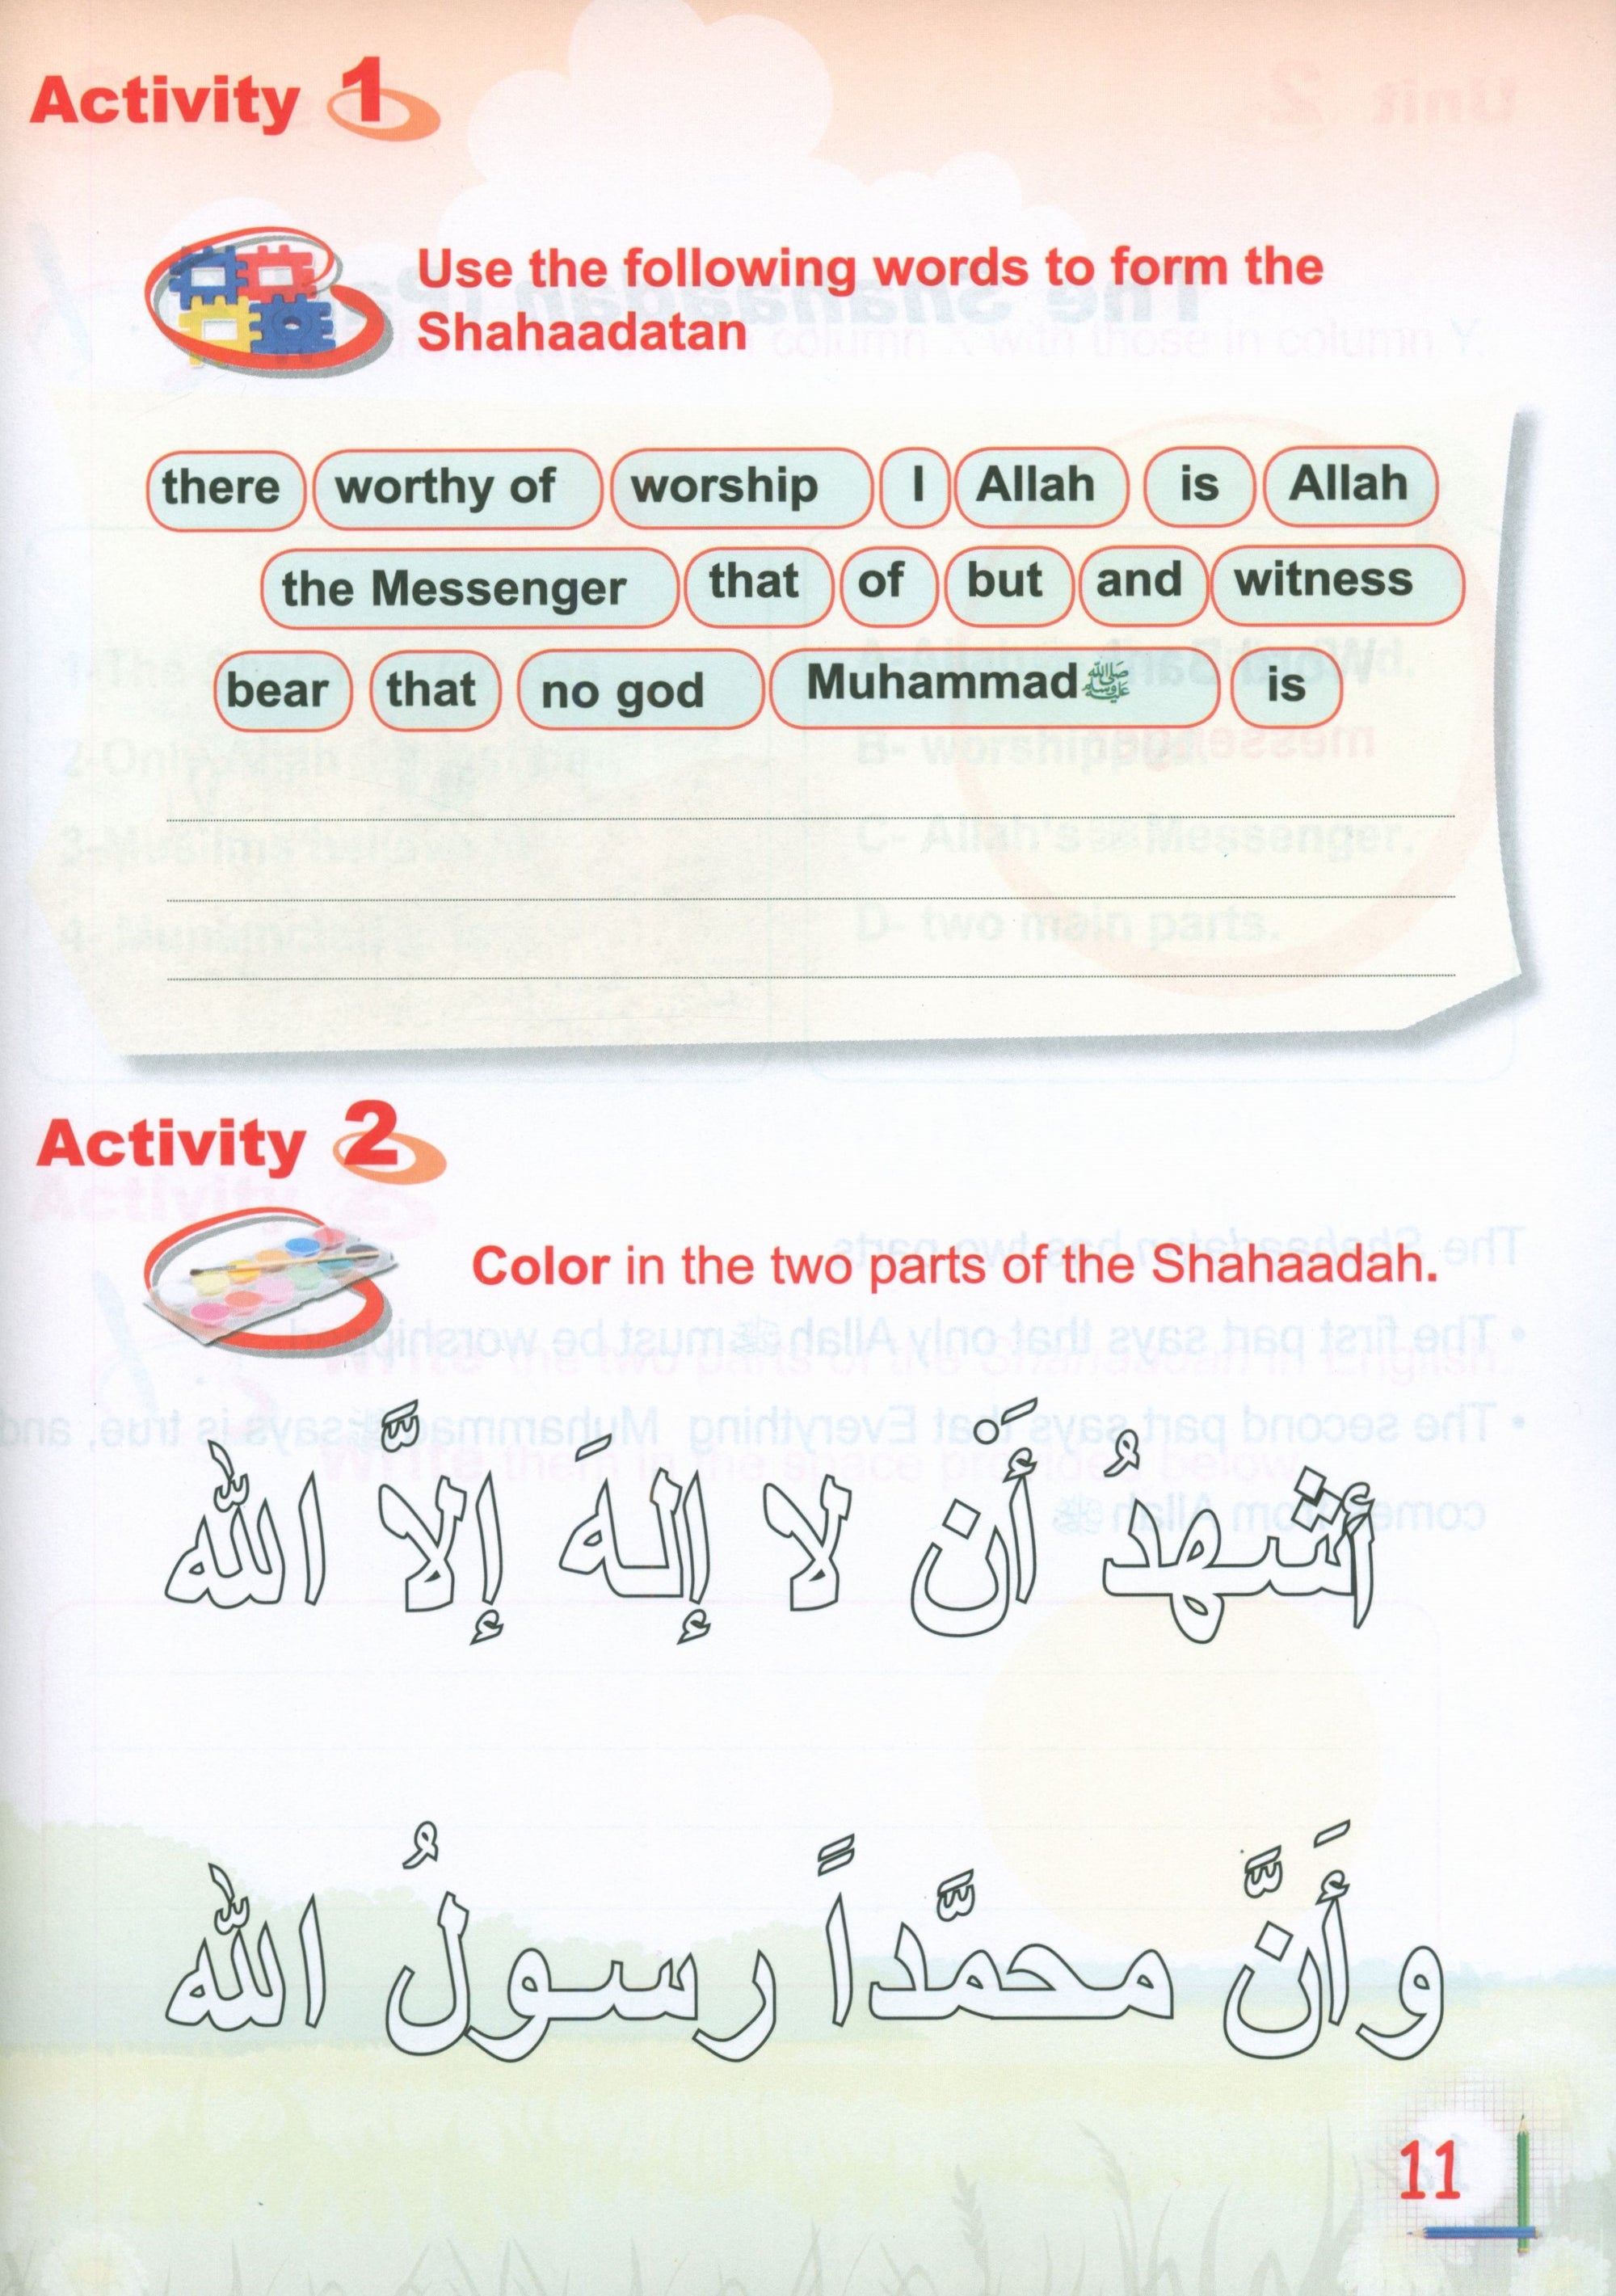 Activity 1
Use the following words to form the
Shahaadatan
there worthy of worship I Allah is Allah
the Messenger that of but and witness
bear that no god Muhammad ﷺ is
Activity 2
Color in the two parts of the Shahaadah.
أَشهدُ أَنْ لا إلهَ إلاَّ الله
وأَنَّ محمَّداً رسولُ الله
11